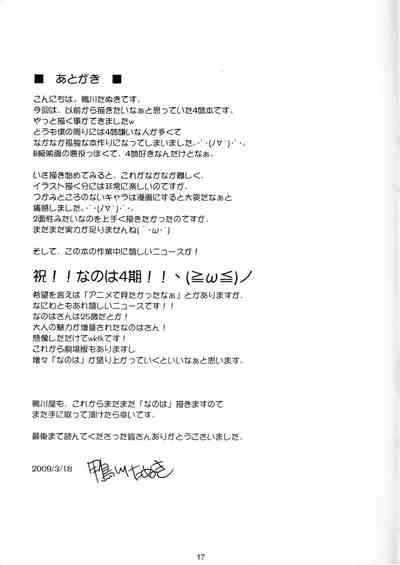 ■ あとがき ■
こんにちは、鴨川たぬきです。
今回は、以前から描きたいなぁと思っていた4誌本です。
やっと描く事ができましたw
どうも僕の周りには4誌嫌いな人が多くて
なかなか孤独な本作りになってしまいました。･ﾟ･(ﾉ∀`)･ﾟ･。
B級映画の悪役っぽくて、4誌好きなんだけどなぁ。
いざ描き始めてみると、これがなかなか難しく、
イラスト描く分には非常に楽しいのですが、
つかみどころのないキャラは漫画にすると大変だなぁと
痛感しました。･ﾟ･(ﾉ∀`)･ﾟ･。
2面性みたいなのを上手く描きたかったのですが、
まだまだ実力が足りませんね(｀･ω･´)
そして、この本の作業中に嬉しいニュースが！
祝！！なのは4期！！ヽ(≧ω≦)ノ
希望を言えば「アニメで見たかったなぁ」とかありますが、
なにわともあれ嬉しいニュースです！！
なのはさんは25歳だとか！
大人の魅力が増量されたなのはさん！
想像しただけでwktkです！
これから劇場版もありますし
増々「なのは」が盛り上がっていくといいなぁと思います。
鴨川屋も、これからまだまだ「なのは」描きますので
また手に取って頂けたら幸いです。
最後まで読んでくださった皆さんありがとうございました。
2009/3/18 鴨川たぬき
17